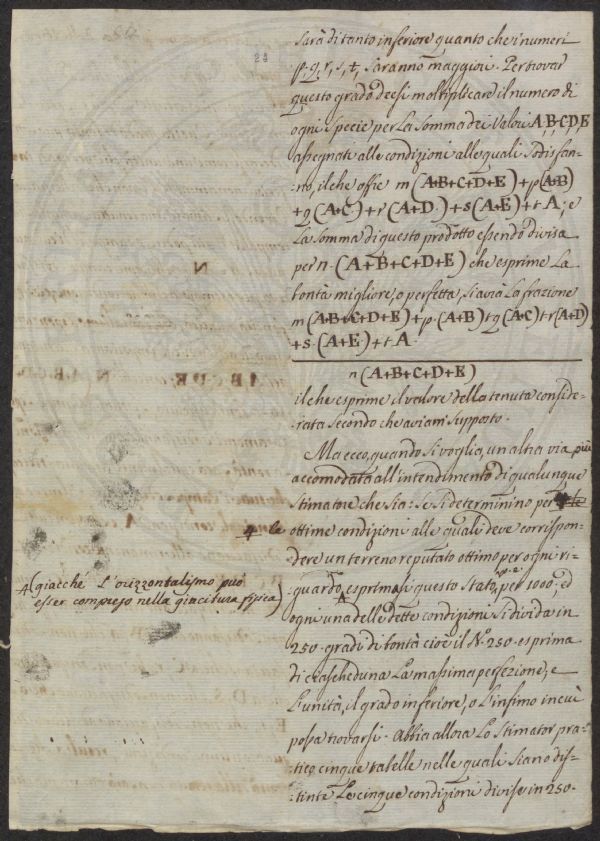 23
sarà di tanto inferiore, quanto che i numeri
p, q, r, s, t, saranno maggiori. Per trovar
questo grado deesi moltiplicare il numero di
ogni specie per la somma dei Valori A,B,C,D,E
assegnati alle condizioni alle quali sodisfan-
:no, il che offre m(A+B+C+D+E)+p(A+B)
+q(A+C)+r(A+D)+s(A+E)+t A; e
la somma di questo prodotto essendo divisa
per n.(A+B+C+D+E) che esprime la
bontà migliore, o perfetta, si avrà la frazione
m(A+B+C+D+E)+p.(A+B)+q(A+C)+r(A+D)
+s.(A+E)+t.A.
n(A+B+C+D+E)
il che esprime il valore della tenuta conside-
:rata secondo che aviam supposto.
Ma ecco, quando si voglia, un altra via più
accomodata all'intendimento di qualunque
Stimatore che sia: Se si determinino per
4 le ottime condizioni alle quali deve corrispon-
dere un terreno reputato ottimo per ogni ri-
:guardo, esprimasi questo Stato, p.e. per 1000; ed
ogni una delle dette condizioni si divida in
250. gradi di bontà cioè il N.º 250. esprima
di ciascheduna la massima perfezione, e
l'unità, il grado inferiore, o l'infimo in cui
possa trovarsi. Abbia allora lo Stimator pra-
:tico cinque tabelle nelle quali siano dis-
:tinte le cinque condizioni divise in 250.
4 (giacchè l'orizzontalismo può
esser compreso nella giacitura fisica)
N